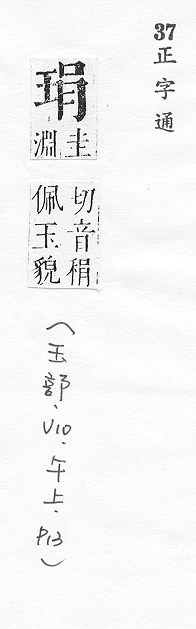 37
正字通
琄
圭淵
切音䅌
佩玉貌
(玉部、V10、午上、P13)